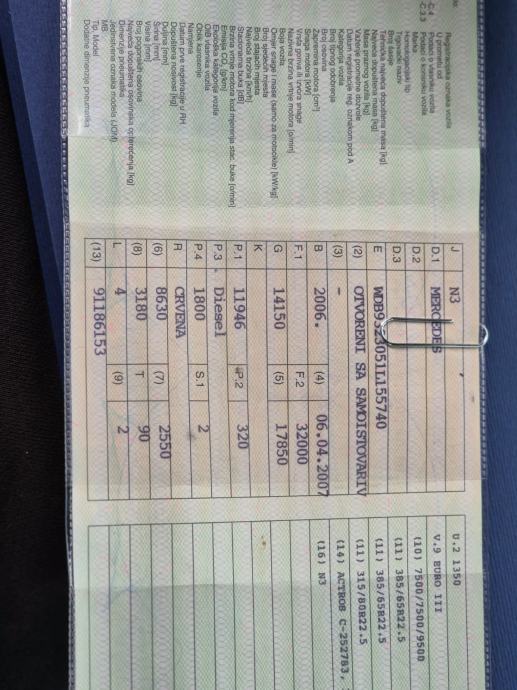 J N3
D.1 MERCEDES
D.2
D.3
E WDB9323051L155740
(2) OTVORENI SA SAMOISTOVARIV
(3) -
B 2006. (4) 06.04.2007
F.1 F.2 32000
G 14150 (5) 17850
K
P.1 11946 P.2 320
P.3 Diesel
P.4 1800 S.1 2
R CRVENA
(6) 8630 (7) 2550
(8) 3180 T 90
L 4 (9) 2
(13) 91186153
U.2 1350
V.9 EURO III
(10) 7500/7500/9500
(11) 385/65R22.5
(11) 385/65R22.5
(11) 315/80R22.5
(14) ACTROS C-252783,
(16) N3
Registarska oznaka vozila
Podaci o vlasniku vozila
Marka
Homologacijski tip
Trgovački naziv
Broj šasije
Tehnička najveća dopuštena masa [kg]
Najveća dopuštena masa [kg]
Masa praznog vozila [kg]
Važenje prometne dozvole
Datum registracije reg. oznakom pod A
Kategorija vozila
Broj osovina
Broj tipnog odobrenja
Zapremina motora [cm³]
Snaga motora [kW]
Vrsta goriva ili izvora snage
Nazivna brzina vrtnje motora [o/min]
Boja vozila
Omjer snage i mase (samo za motocikle) [kW/kg]
Broj sjedećih mjesta
Broj stajaćih mjesta
Najveća brzina [km/h]
Stacionarna buka [dB]
Brzina vrtnje motora kod mjerenja stac. buke [o/min]
Emisija CO₂ [g/km]
Ekološka kategorija vozila
OIB vlasnika vozila
Oblik karoserije
Namjena
Datum prve registracije u RH
Dopuštena nosivost [kg]
Duljina [mm]
Širina [mm]
Visina [mm]
Broj pogonskih osovina
Najveća dopuštena osovinska opterećenja [kg]
Dimenzije pneumatika
Jedinstvena oznaka modela (JOM)
MB
Tip, Model
Dodatne dimenzije pneumatika